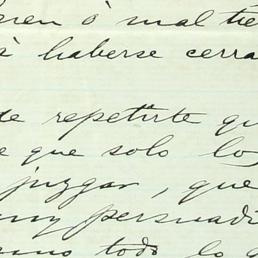 ó mal tie
á haberse cerra
de repetirte qu
e que solo lo
juzgar, que
muy persuadi
todo lo